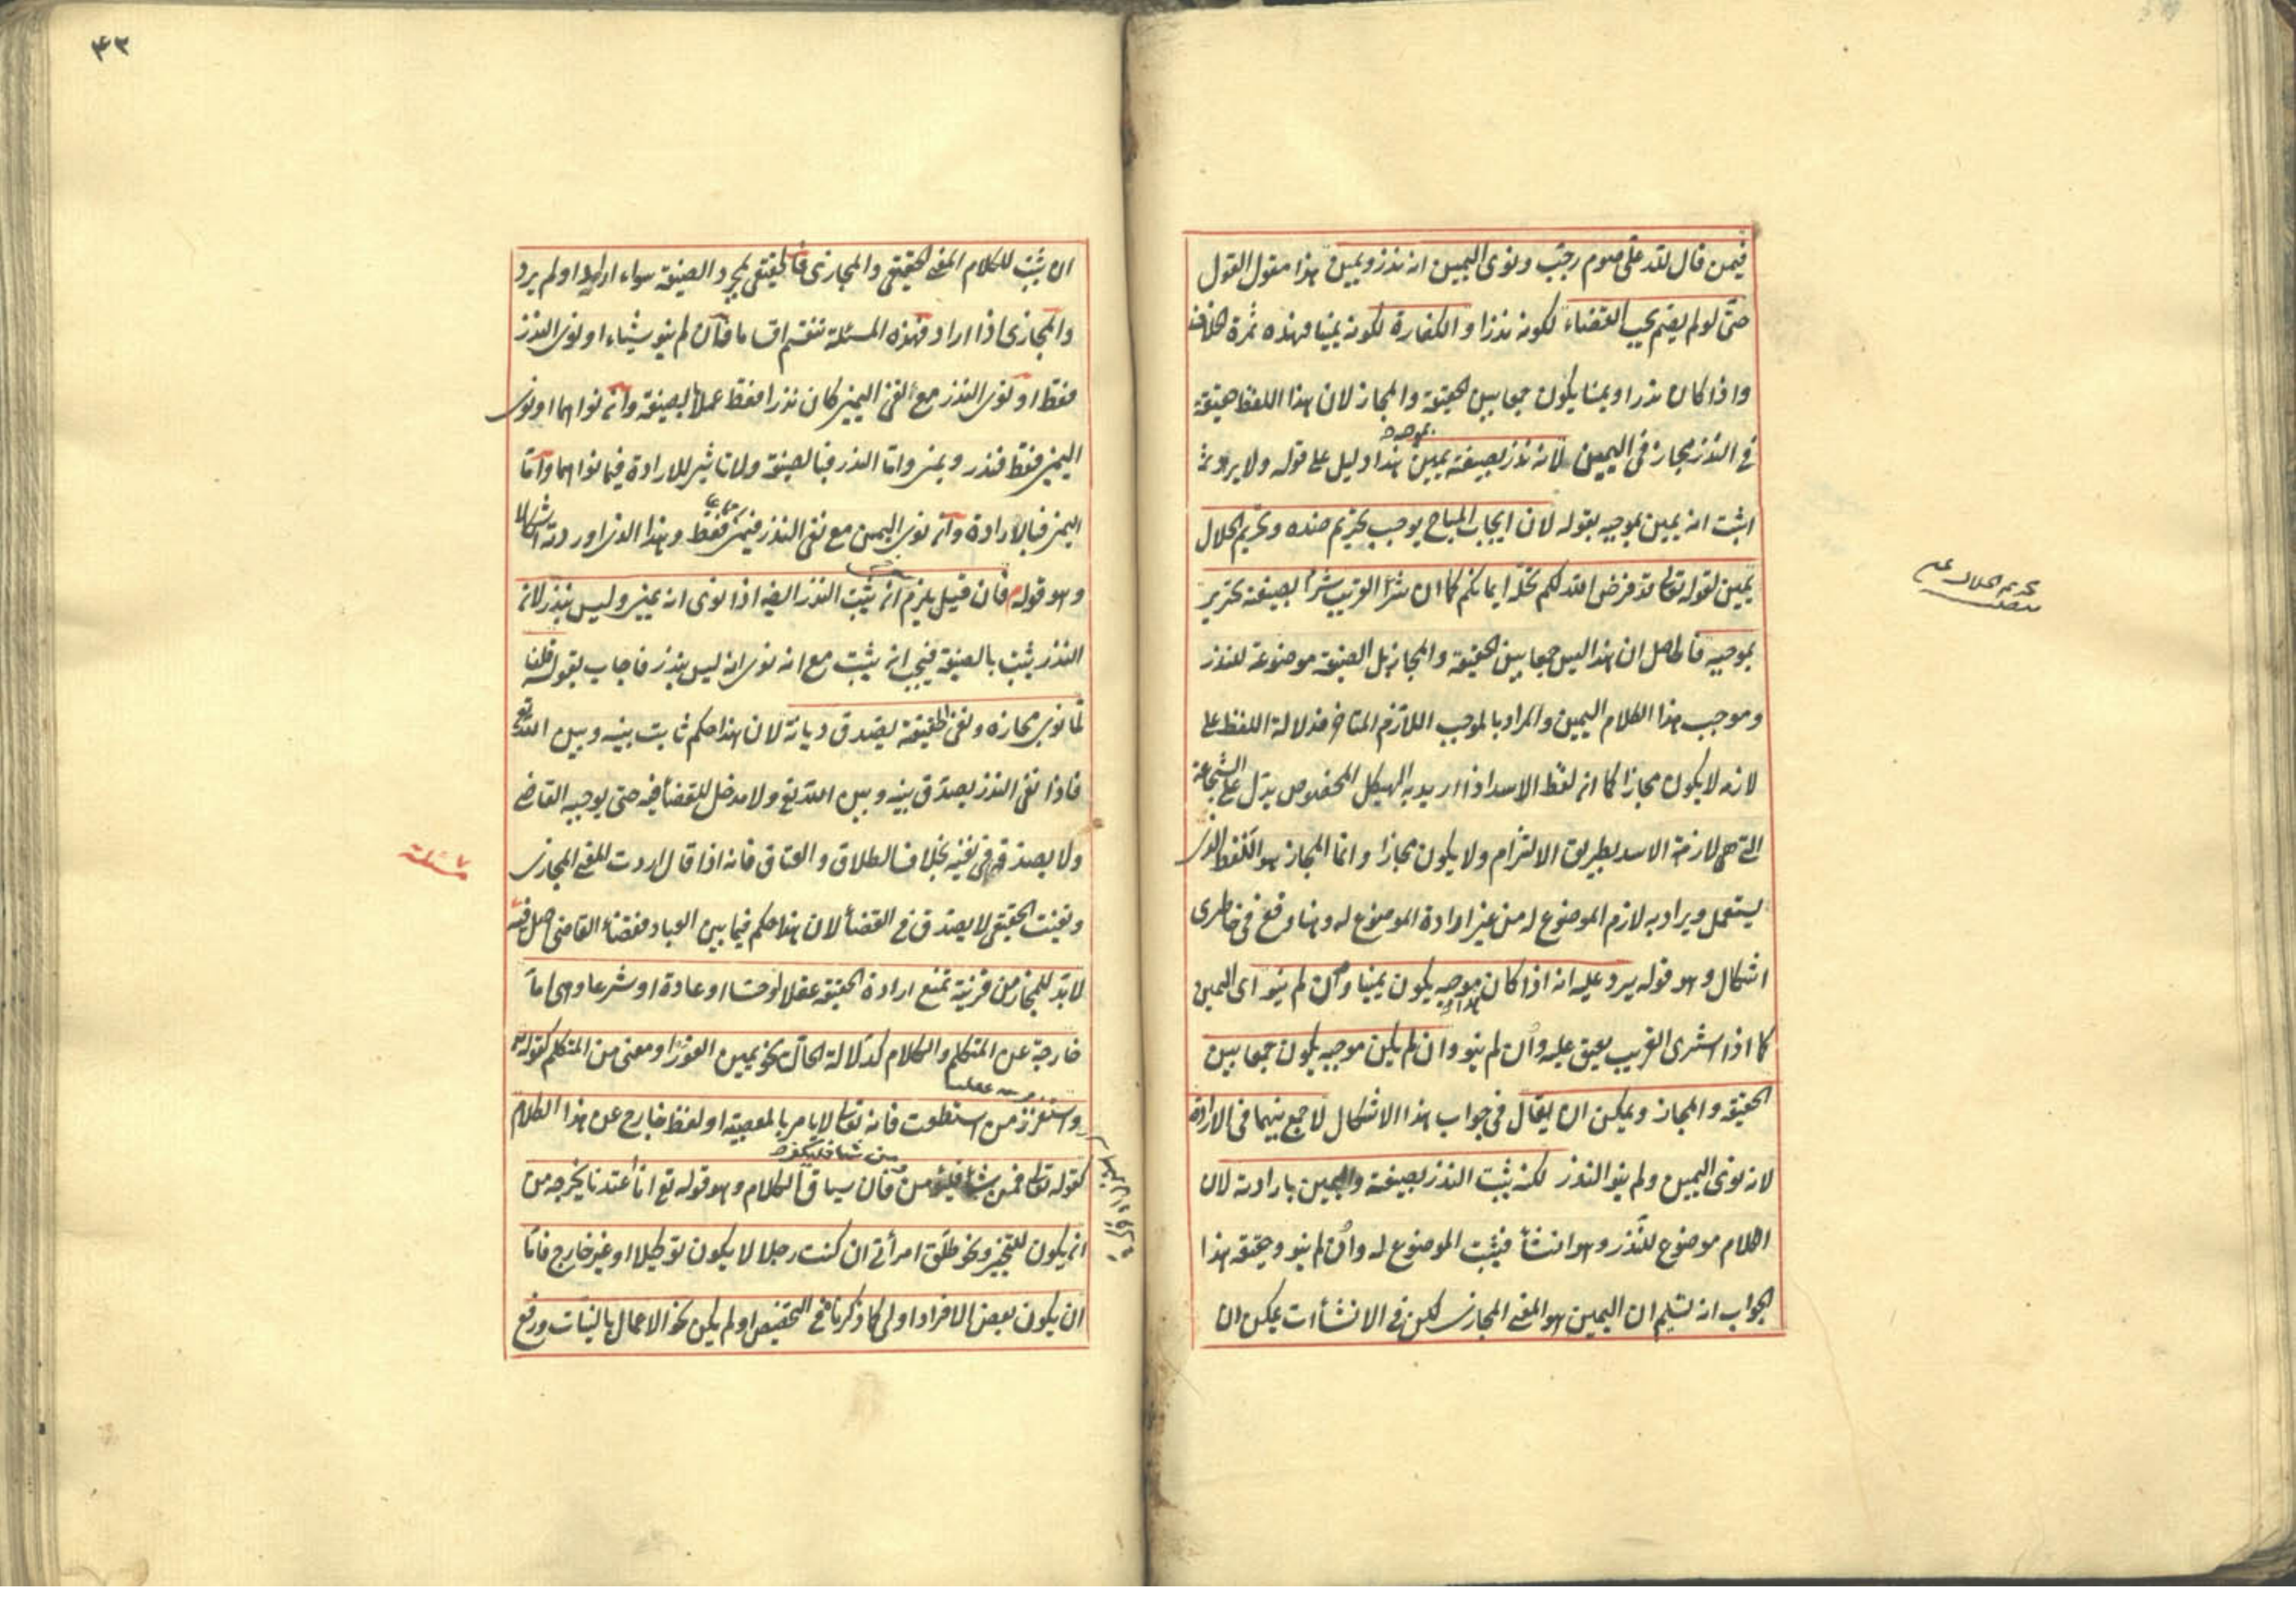 فيمن قال لله على صوم رجب ونوى اليمين انه نذر ويمين هذا مقول القول
حتى لو لم يصم يجب القضاء لكونه نذرا والكفارة لكونه يمينا فهذه ثمرة الخلاف
واذا كان نذرا ويمينا يكون جمعا بين الحقيقة والمجاز لان هذا اللفظ حقيقة
في النذر مجاز في اليمين لانه نذر بصيغته يمين بموجبه هذا دليل على قوله ولا يرد ثم
اثبت انه يمين بموجبه بقوله لان ايجاب المباح يوجب تحريم ضده وتحريم الحلال
يمين لقوله تعالى قد فرض الله لكم تحلة ايمانكم كما ان شراء القريب شراء بصيغته تحرير
بموجبه فالحاصل ان هذا ليس جمعا بين الحقيقة والمجاز بل الصيغة موضوعة للنذر
وموجب هذا الكلام اليمين والمراد بالموجب اللازم المتاخر فدلالة اللفظ على
لازمه لا يكون مجازا كما ان لفظ الاسد اذا اريد به الهيكل المخصوص يدل على الشجاعة
التي هي لازمة الاسد بطريق الالتزام ولا يكون مجازا وانما المجاز هو اللفظ الذى
يستعمل ويراد به لازم الموضوع له من غير ارادة الموضوع له وهنا وقع في خاطرى
اشكال وهو قوله يرد عليه انه اذا كان هذا موجبه يكون يمينا وان لم ينو اى اليمين
كما اذا اشترى القريب يعتق عليه وان لم ينو وان لم يكن موجبه يكون جمعا بين
الحقيقة والمجاز ويمكن ان يقال في جواب هذا الاشكال لا جمع بينهما في الارادة
لانه نوى اليمين ولم ينو النذر لكنه يثبت النذر بصيغته واليمين بارادته لان
الكلام موضوع للنذر وهو انشاء فيثبت الموضوع له وان لم ينو وحقيقة هذا
الجواب انه تسليم ان اليمين هو المعنى المجازى لكن في الانشاءات يمكن ان
تحريم الحلال يمين
٤٣
ان يثبت للكلام المعنى الحقيقى والمجازى فالحقيقى بمجرد الصيغة سواء اراد او لم يرد
والمجازى اذا اراد فهذه المسئلة تنقسم اقساما فان لم ينو شيئا او نوى النذر
فقط او نوى النذر مع نفى اليمين كان نذرا فقط عملا بصيغته وان نواهما او نوى
اليمين فقط فنذر ويمين واما النذر فبالصيغة ولا تاثير للارادة فيما نواهما واما
اليمين فبالارادة وان نوى اليمين مع نفى النذر فيمين فقط وهذا الذى اوردته اشكالا
وهو قوله فان قيل يلزم ان يثبت النذر ايضا اذا نوى انه يمين وليس بنذر لانه
النذر يثبت بالصيغة فيجب ان يثبت مع انه نوى انه ليس بنذر فاجاب بقوله قلنا
لما نوى مجازه ونفى الحقيقة يصدق ديانة لان هذا حكم ثابت بينه وبين الله تع
فاذا نفى النذر يصدق بينه وبين الله تع ولا مدخل للقضاء فيه حتى يوجبه القاضى
ولا يصدقه في نفيه بخلاف الطلاق والعتاق فانه اذا قال اردت المعنى المجازى
ونفيت الحقيقى لا يصدق في القضاء لان هذا حكم فيما بين العباد فقضاء القاضى اصل فيه
لا بد للمجاز من قرينة تمنع ارادة الحقيقة عقلا او حسا او عادة او شرعا وهى اما
خارجة عن المتكلم والكلام كدلالة الحال نحو يمين الفور او معنى من المتكلم كقوله
واستفزز من استطعت فانه تعالى لا يامر بالمعصية او لفظ خارج عن هذا الكلام
كقوله تعالى فمن شاء فليؤمن ومن شاء فليكفر فان سياق الكلام وهو قوله تع انا اعتدنا يخرجه من
ان يكون للتخيير ونحو طلق امرأتى ان كنت رجلا لا يكون توكيلا او غير خارج فاما
ان يكون بعض الافراد اولى كما ذكرنا في التخصيص او لم يكن نحو الاعمال بالنيات ورفع